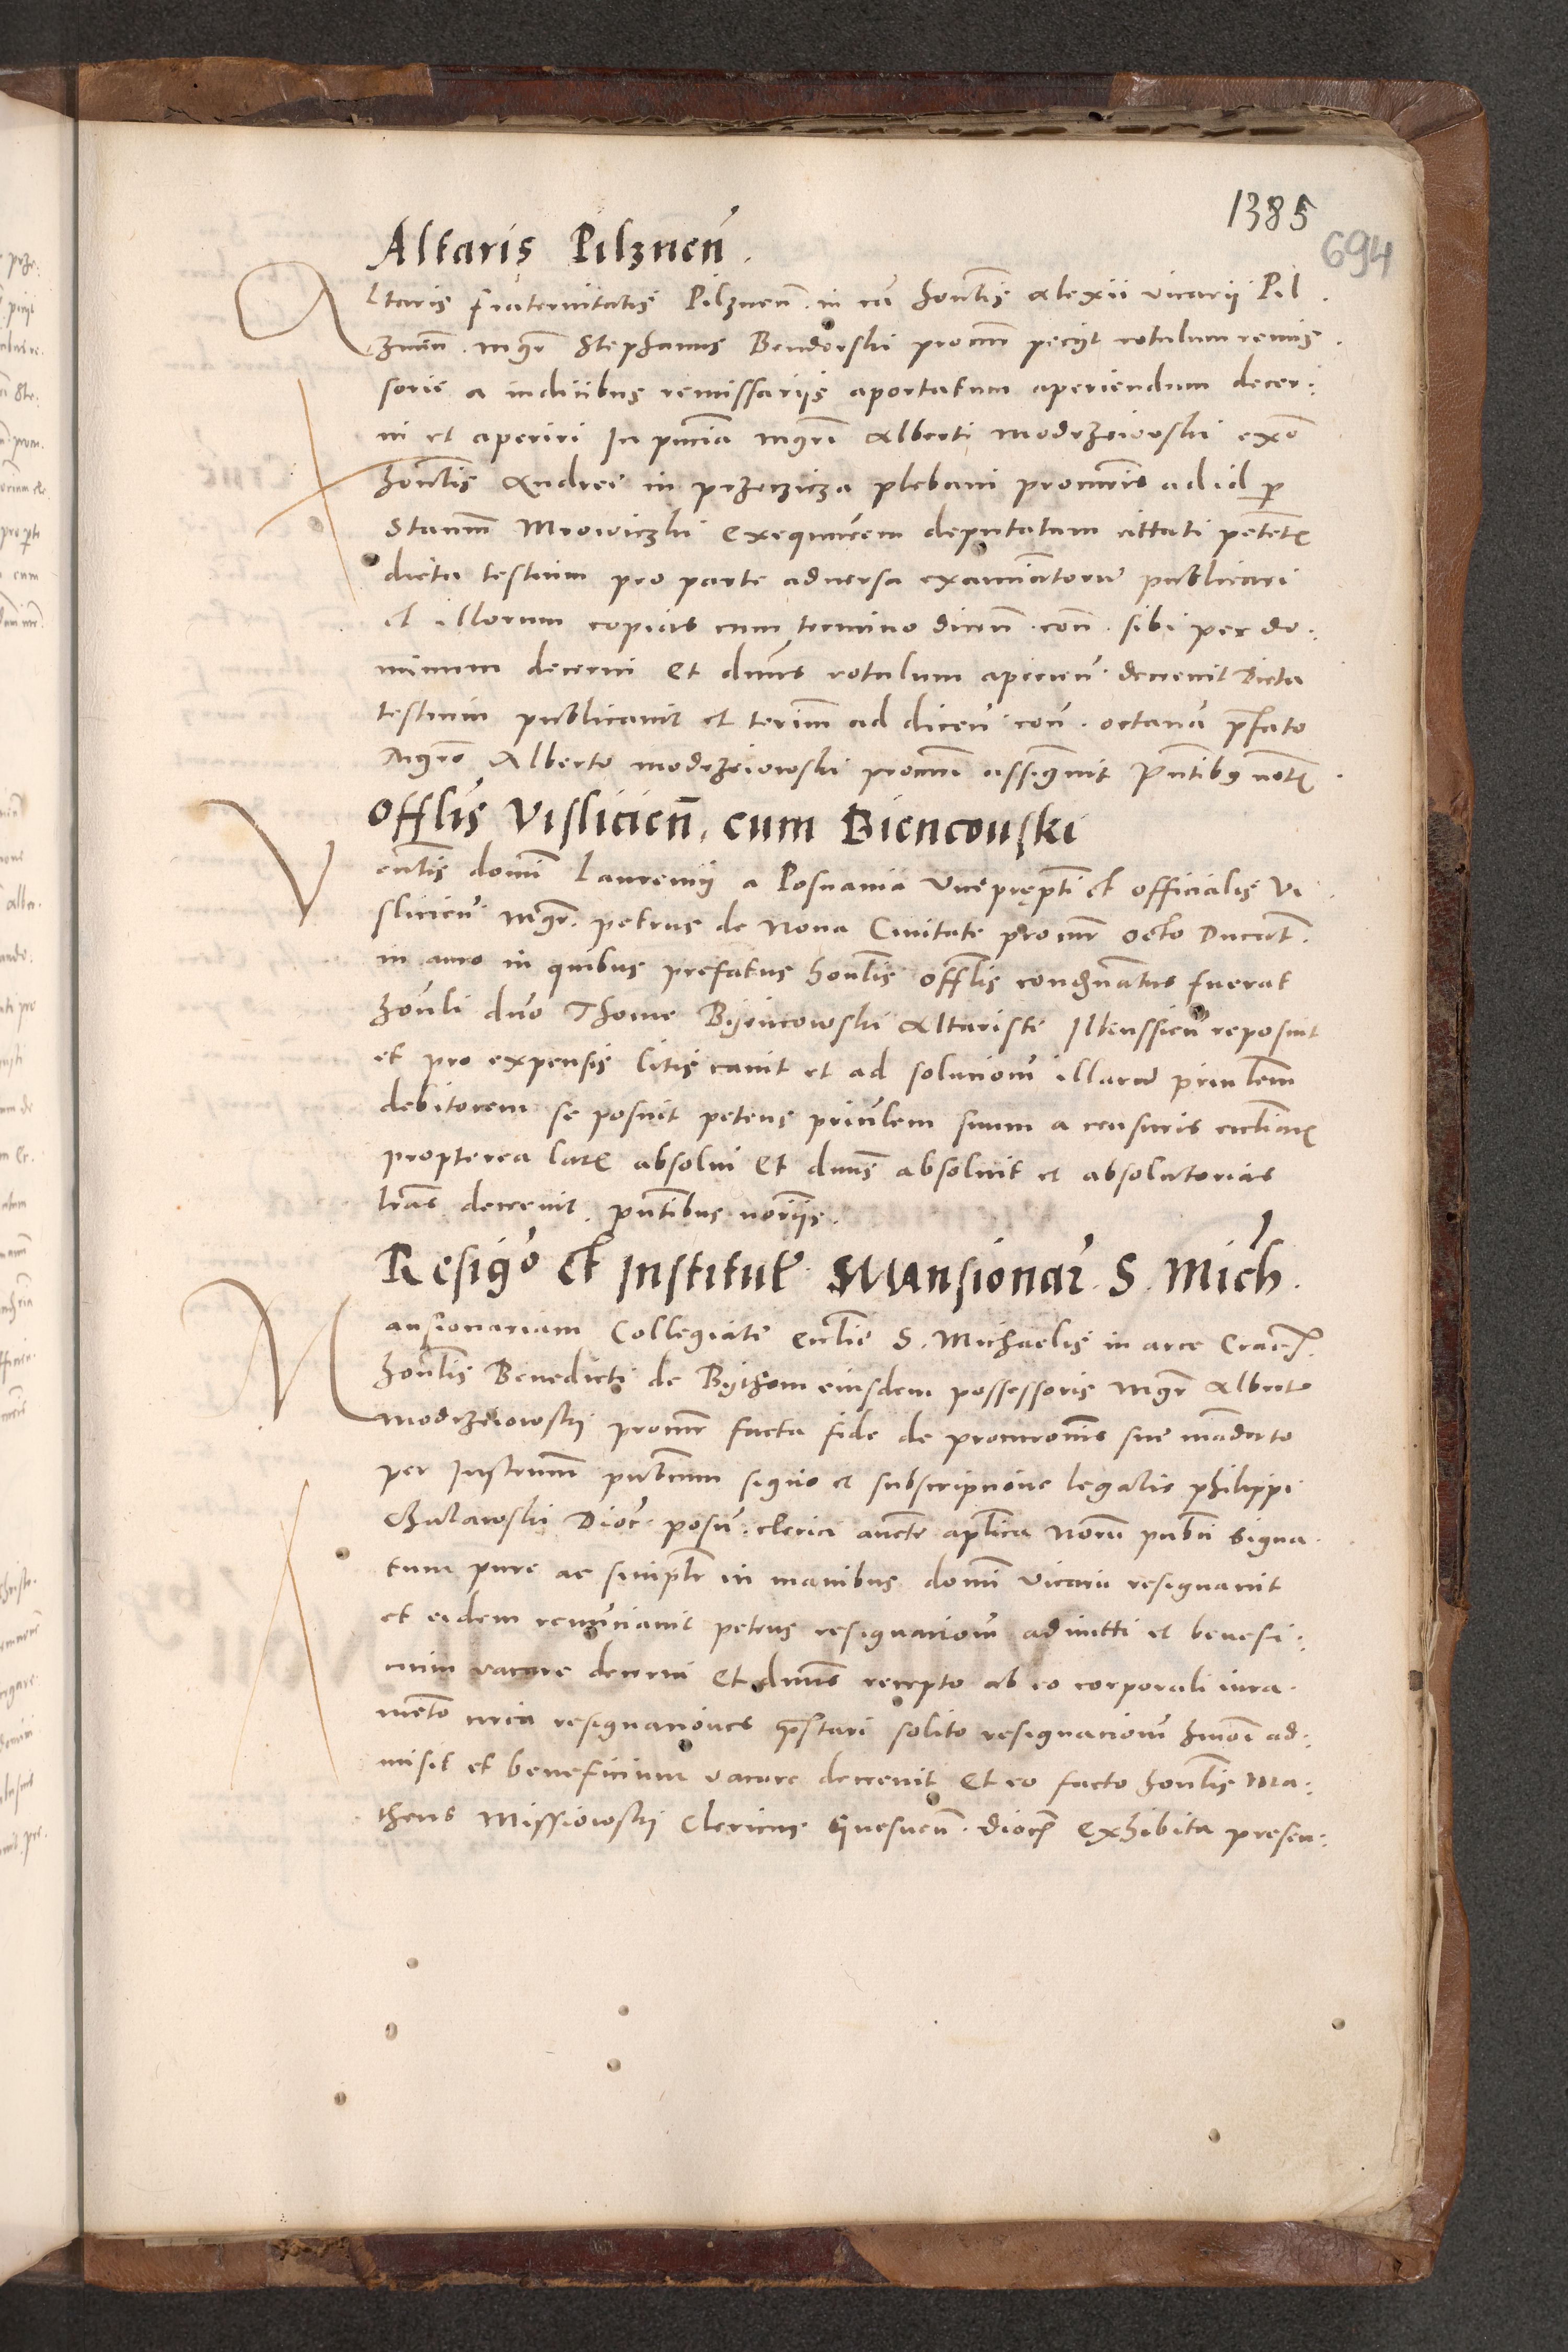 1385
694
Altaris Pilznen̄.
Altaris fraternitatis Pilznen̄. in cā hon̄lis Alexii vicarii Pil
znen̄. mgr̄ Stephanus Benderski procur̄ peciit rotulum remis
sorie a iudicibus remissariis aportatum aperiendum decer:
ni et aperiri In pn̄cia mgr̄i Alberti modrzeiowski ex o͞
hon̄lis Andree in przeczicza plebani procur̄is ad id p̱
Stanm̄ Mrowiczki exequutorem deputatum citati petetȩ
dicta testium pro parte adversa examinatorū publicari
et illorum copias cum termino dicen̄. con̄. sibi per do:
minum decerni Et dn̄us rotulum aperien̄. decrevit Dicta
testium publicavit et termīn ad dicen̄. con̄. octavā p̄fato
Mgr̄o Alberto modrzeiowski procur̄i assignvit Pn̄tibꝰ not
Offlis Vislicien̄. cum Biencouski
Ven̄lis domī Laurencij a Posnania Viceprepti et officialis Vi
slicien̄. Mgr̄. petrus de Nova Civitate procur̄ octo Ducat̄.
in auro in quibus prefatus hon̄lis offlis condn̄atus fuerat
hon̄li dn̄o Thome Bijencowski Altariste Ilkussien̄ reposuit
et pro expensis litis cavit et ad solucionē illarū prin̄lem
debitorem se posuit petens prin̄lem suum a censuris eccl̄iatȩ
propterea latȩ absolvi Et dn̄us absolvit et absolutorias
lr̄as decrevit. pn̄tibus nor̄iis.
Resig͞o et Institut̄. Mansionar̄. S. Mich.
Mansionariam Collegiate Eccl̄ie S. Michaelis in arce Cracȩ.
hon̄lis Benedicti de Bythom eiusdem possessoris Mgr̄ Albert9
Modrzeiowski procur̄ facta fide de procuronis sue mādato
per Instrum̄ pub̄cum signo et subscripcione legalis philippi
Chulawski Dioc̄. posn̄. clerici auct̄e apl̄ica Norii pub̄ci signa
tum pure ac simpl̄r in manibus domī vicarii resignavit
et eidem renunciavit petens resignacionē admitti et benefi:
cium vacare decerni Et dn̄us recepto ab eo corporali iura
mento circa resignaciones p̄stari solito resignacionē hmoī ad:
misit et beneficium vacare decrevit Et eo facto hon̄lis Ma:
theus Missiowski Clericus Gnesnen̄. dioc̄ȩ exhibita presen: